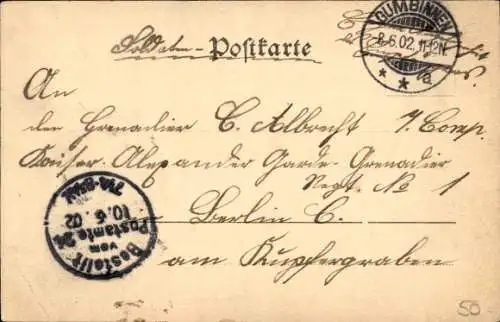 GUMBINNEN
8.6.02.11-12N.
* * a
Soldaten - Postkarte
An
den Grenadier C. Albrecht 7. Comp.
Kaiser Alexander Garde-Grenadier
Regt. No 1
Berlin C.
am Kupfergraben
Bestellt
vom
Postamte 24
10.6.02
50